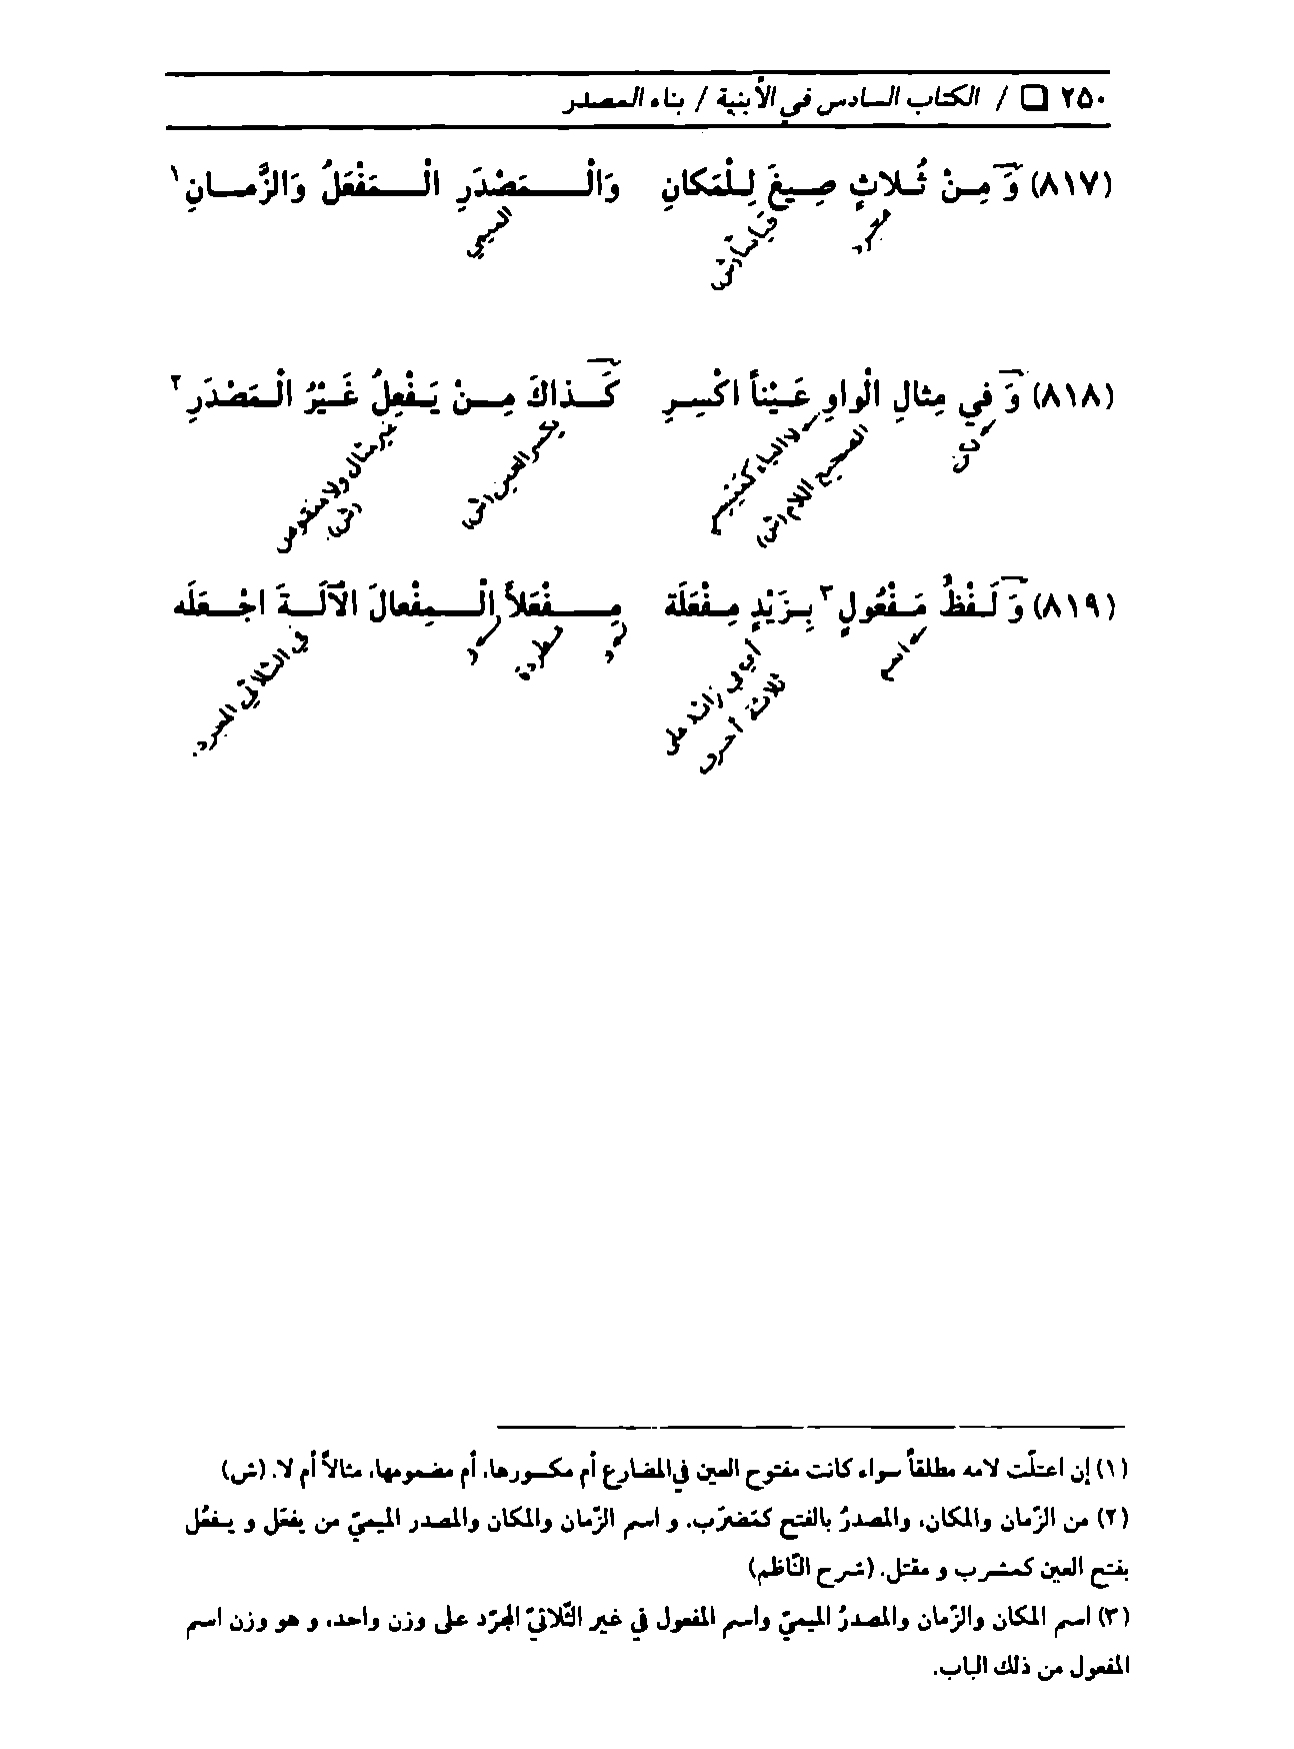 ٢٥٠ □ / الكتاب السادس في الأبنية / بناء المصدر
(٨١٧) وَ مِنْ ثُلاثٍ صِيغَ لِلْمَكانِ وَالْمَصْدَرِ الْمَفْعَلُ وَالزَّمانِ ١
مجرد
قياساً (ش)
الميمي
(٨١٨) وَ في مِثالِ الْواوِ عَيْناً اكْسِرِ كَذاكَ مِنْ يَفْعِلُ غَيْرُ الْمَصْدَرِ ٢
الصحيح اللام (ش)
بكسر العين (ش)
غير مثال ولا منقوص
(ش).
(٨١٩) وَ لَفْظُ مَفْعُولٍ ٣ بِزَيْدٍ مِفْعَلَة مِفْعَلاً الْمِفْعالَ الآلَةَ اجْعَلَه
اسم
أي في زائد على
ثلاثة أحرف
مطردة
في الثلاثي المجرد.
(١) إن اعتلّت لامه مطلقاً سواء كانت مفتوح العين في المضارع أم مكسورها، أم مضمومها، مثالاً أم لا. (ش)
(٢) من الزّمان والمكان، والمصدرُ بالفتح كمَضرَب. و اسم الزّمان والمكان والمصدر الميميّ من يفعَل و يفعُل
بفتح العين كمشرب و مقتل. (شرح النّاظم)
(٣) اسم المكان والزّمان والمصدرُ الميميّ واسم المفعول في غير الثّلاثيّ المجرّد على وزن واحد، و هو وزن اسم
المفعول من ذلك الباب.